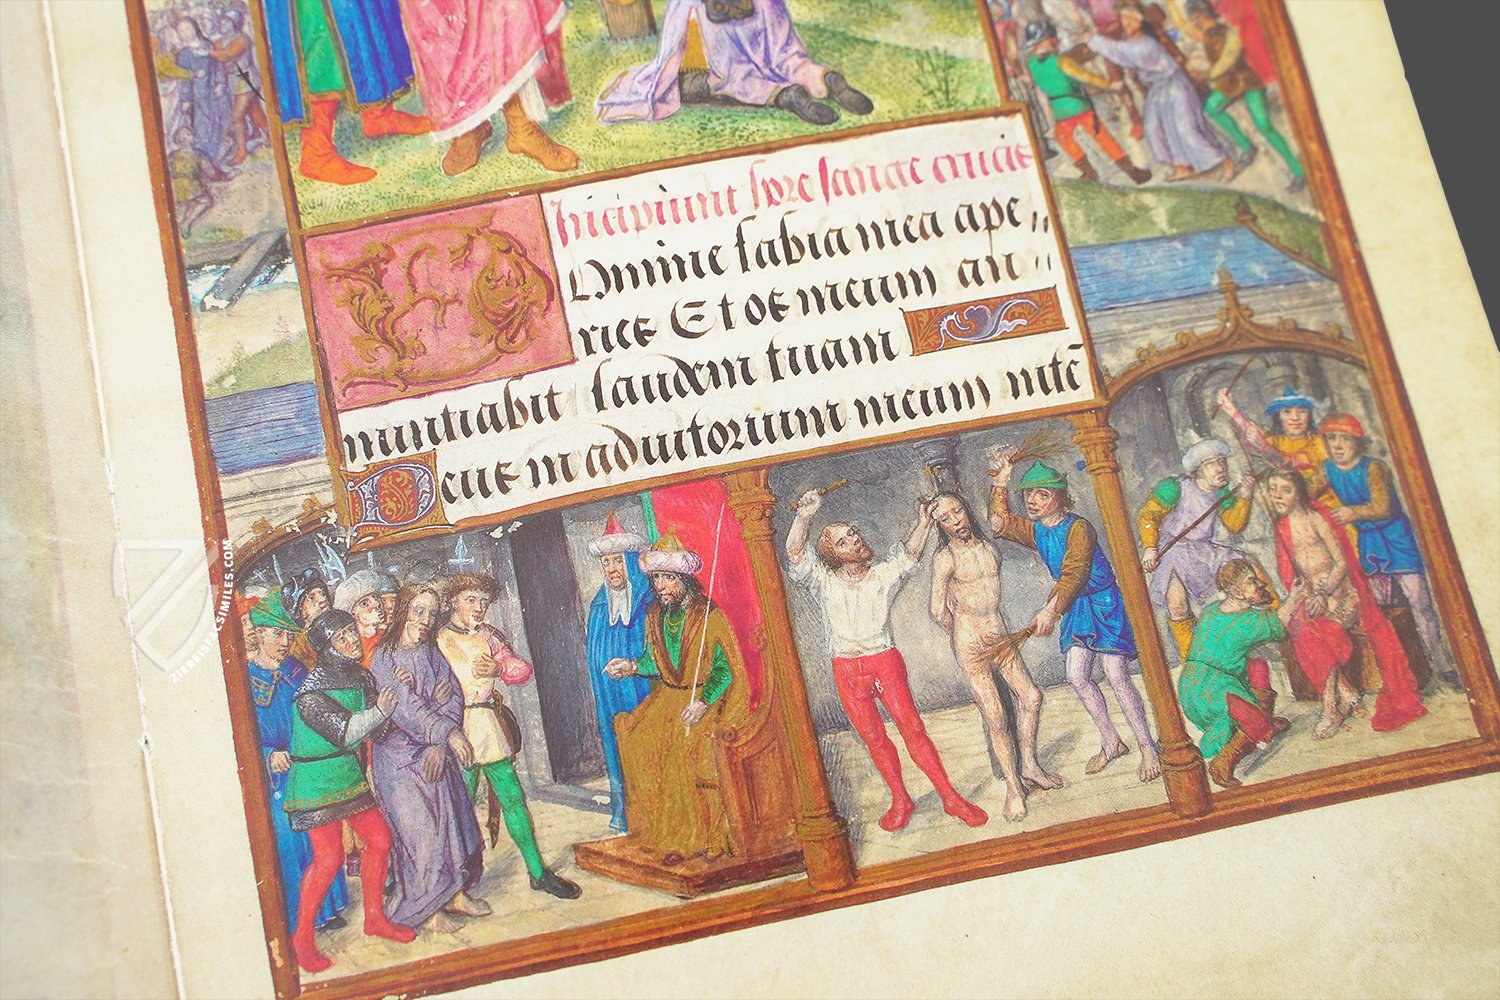 Incipiunt hore sancte crucis
Domine labia mea ape〃
ries Et os meum an〃
nuntiabit laudem tuam
Deus in adiutorium meum intē
ZIEREISFACSIMILES.COM